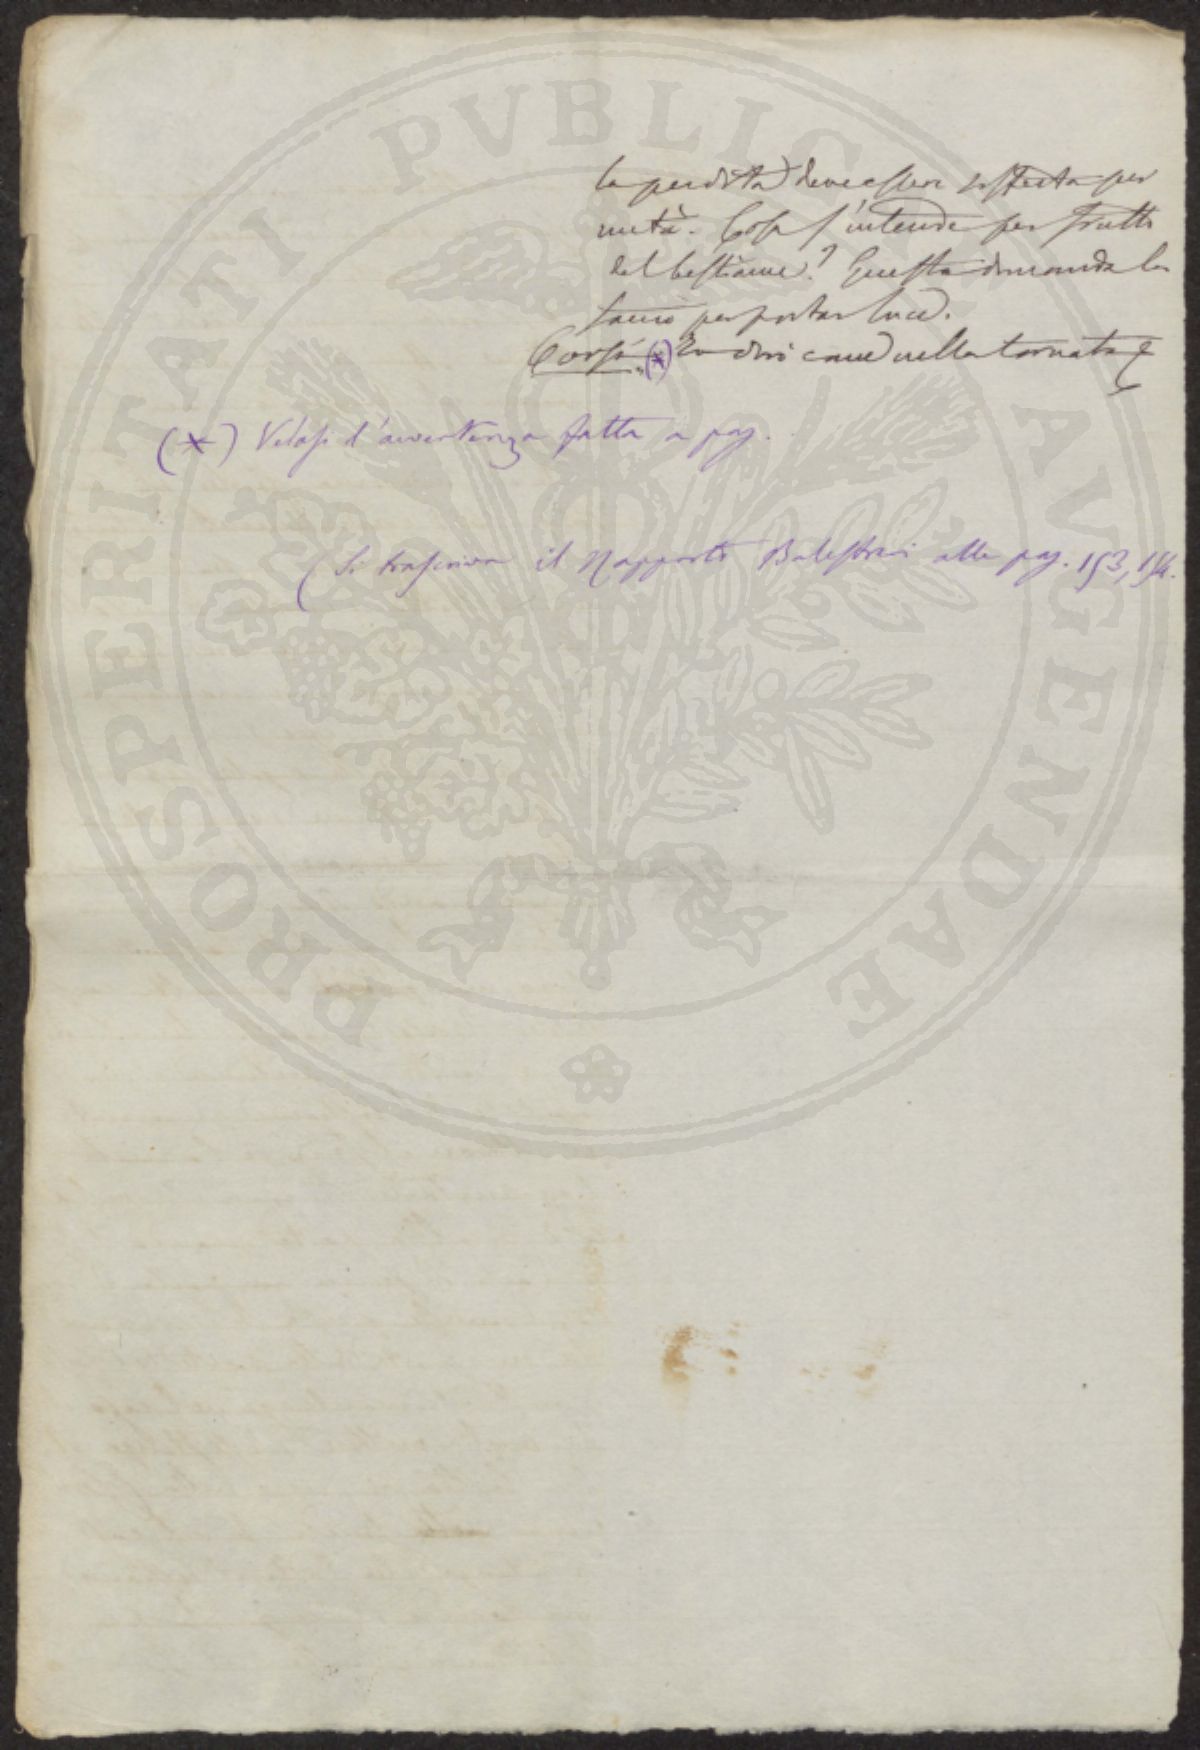 la perdita deve essere sofferta per
metà. Cosa s'intende per frutti
del bestiame? Questa domanda la
faccio per portar luce.
Corsi. (*) Io dirò come nella tornata
(*) Vedasi l'avvertenza fatta a pag.
(Si trascriva il Rapporto Balestreri alla pag. 153, 154.
PROSPERITATI PVBLICAE AVGENDAE